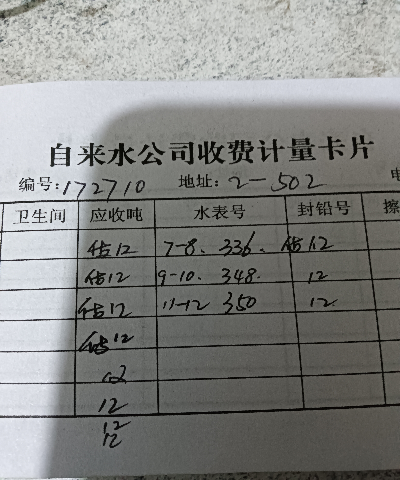 自来水公司收费计量卡片
编号:172710 地址:2-502 电
卫生间 应收吨 水表号 封铅号 擦
估12 7-8. 336. 估12
估12 9-10. 348. 12
估12 11-12 350 12
估12
12
12
12